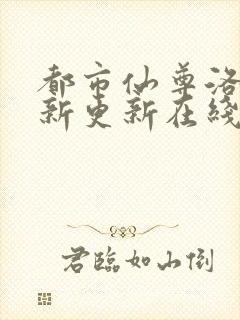 都市仙尊洛
新更新在线
君临如山倒